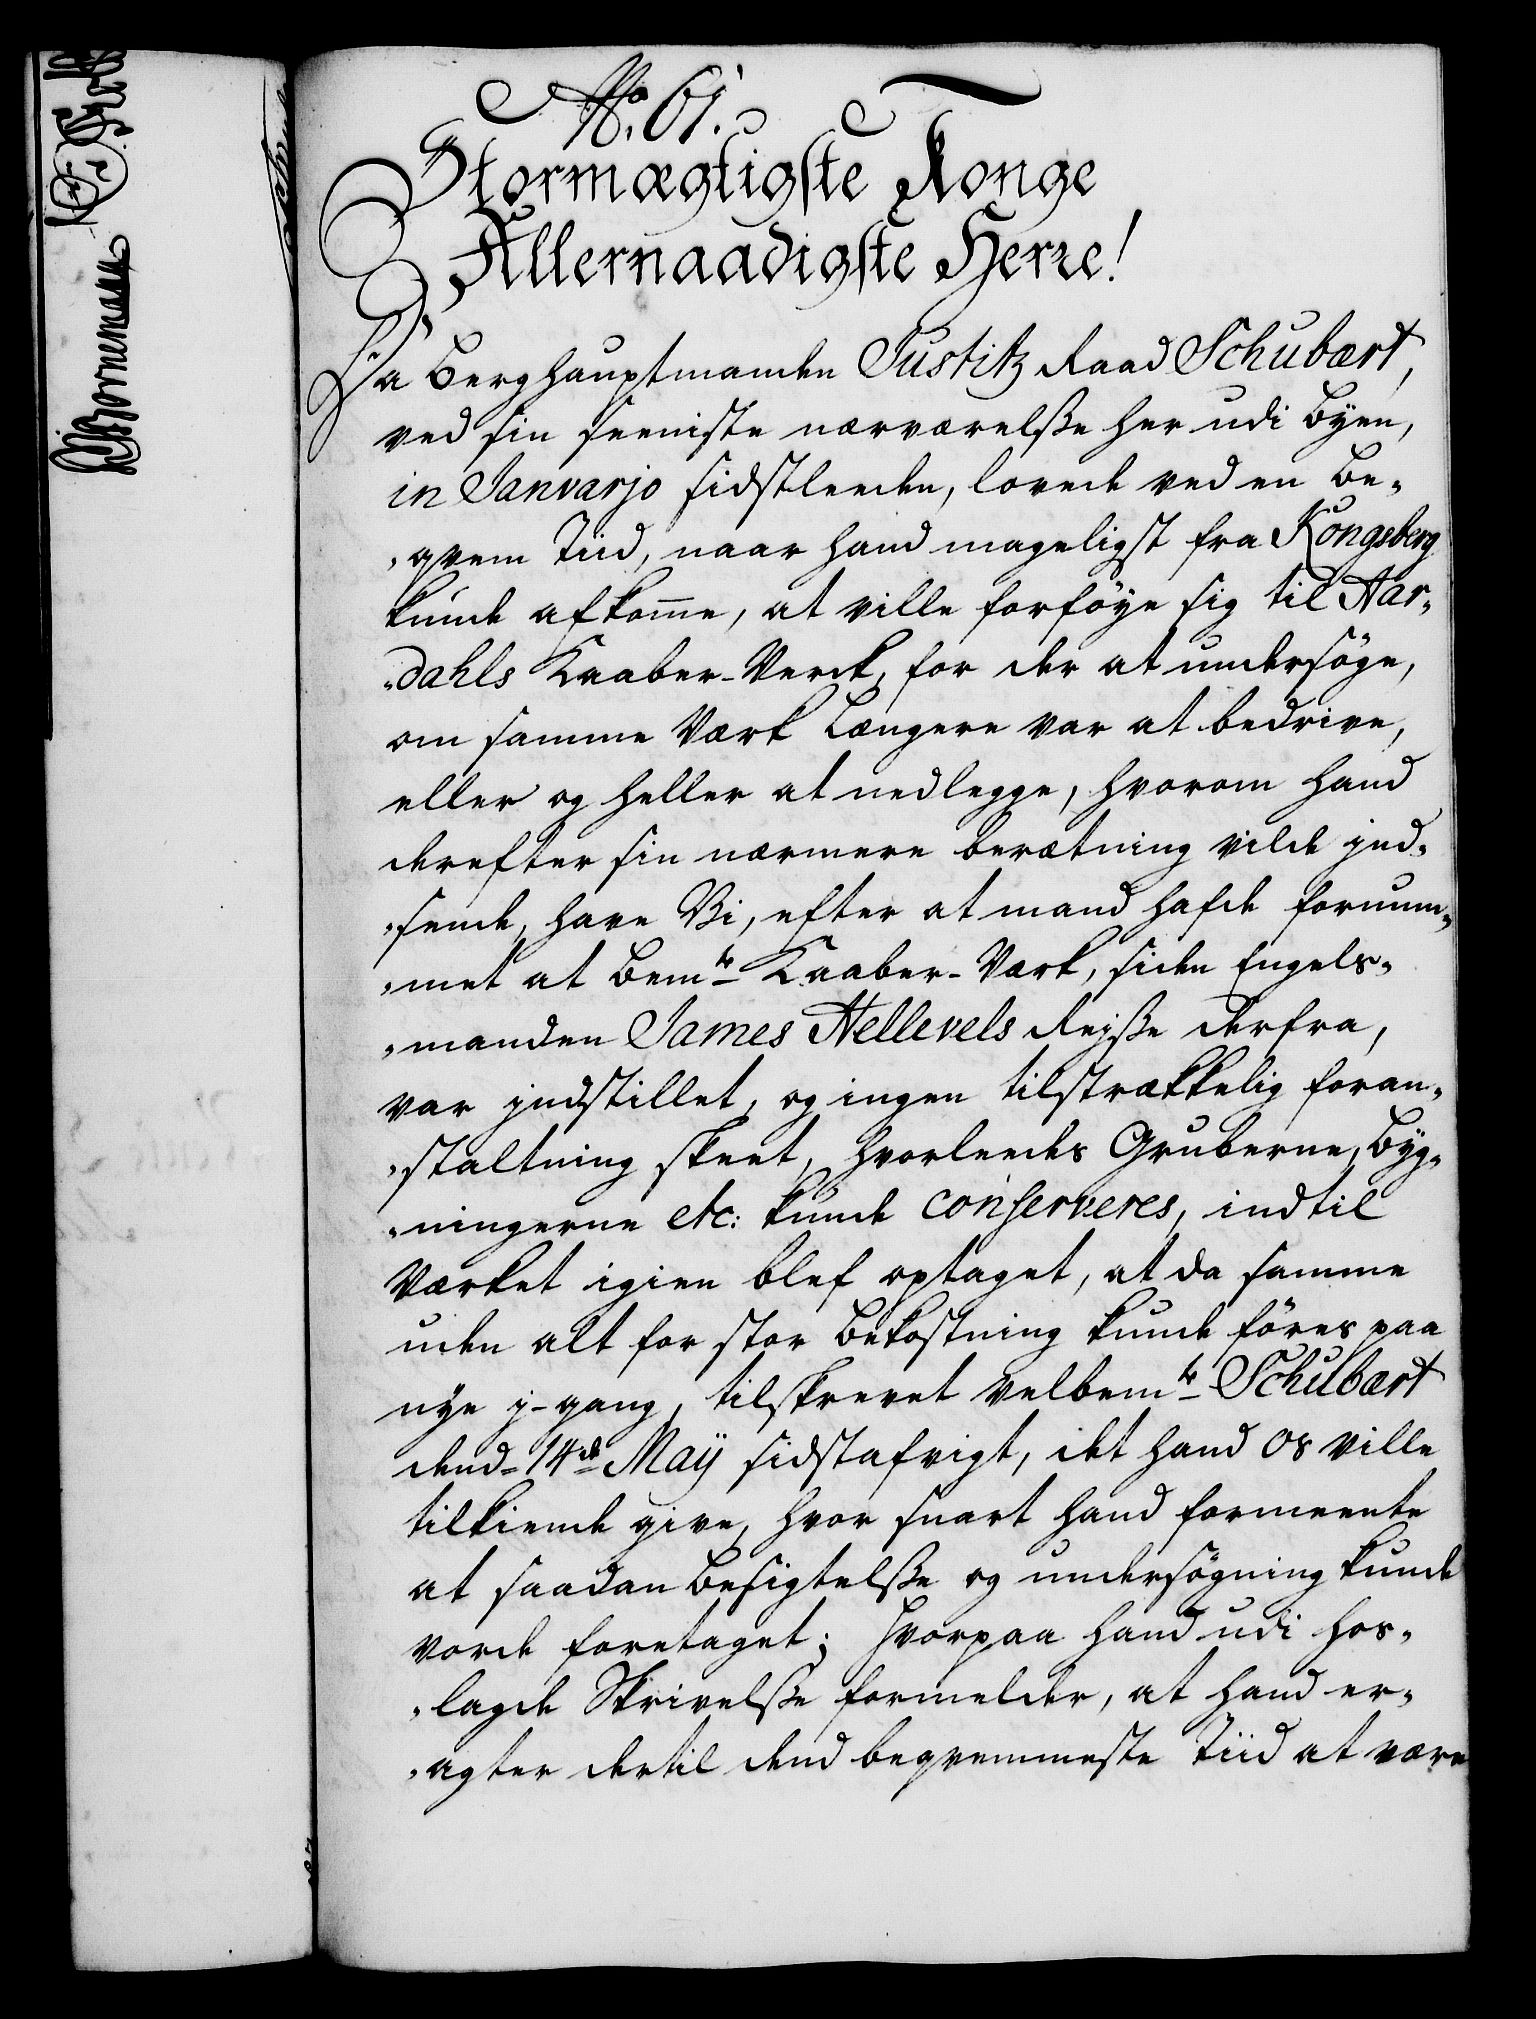 No. 61.
Stormægtigste Konge
Allernaadigste Herre!
Da Berghauptmanden Justitz Raad Schubært,
ved sin seeniste nærværelße her udi Byen,
in Janvarjo sidstleeden, lovede ved en be-
qvem Tiid, naar hand mageligst fra Kongsberg
kunde afkom̅e, at ville forföye sig til Aar-
dahls Kaaber-Verck, for der at undersöge,
om samme Værk længere var at bedrive,
eller og heller at nedlegge, hvorom hand
derefter sin nærmere berætning vilde ind-
sende, have Vi, efter at mand hafde fornum-
met at bemte Kaaber-Værk, siden Engels-
manden James Hellevels Reyße derfra,
var indstillet, og ingen tilstrækkelig foran-
staltning skeet, hvorleedes Gruberne, Byg-
ningerne etc: kunde conserveres, indtil
Værket igien blef optaget, at da samme
uden alt for stor bekostning kunde föres paa
nye i-gang, tilskrevet velbemte Schubært
dend 14de Maÿ sidstafvigt, det hand os ville
tilkiende give, hvor snart hand formeente
at saadan besigtelße og undersögning kunde
vorde foretaget; hvorpaa hand udi hos-
lagde Skrivelße formelder, at hand er-
agter dertil dend beqvemmeste Tiid at være
Bornemann